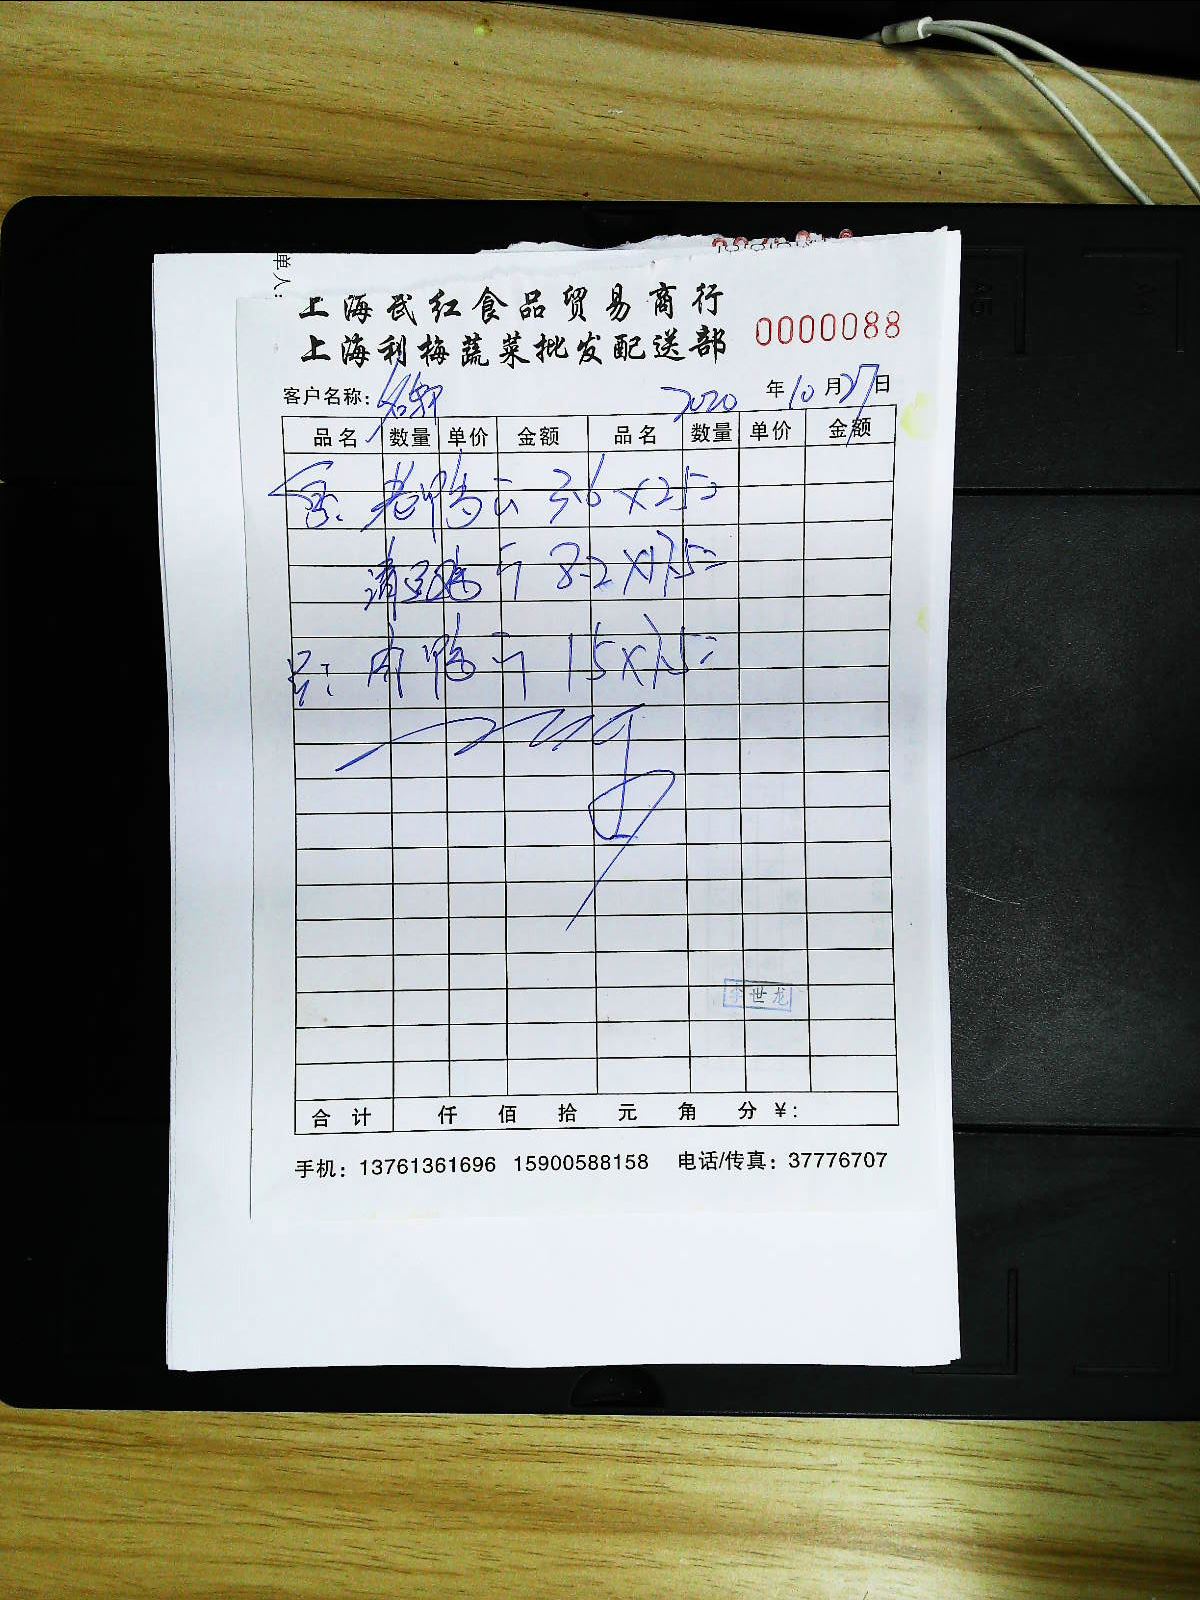 单人:
上海武红食品贸易商行
上海利梅蔬菜批发配送部
0000088
客户名称: 2020 年 10 月 27 日
品名 数量 单价 金额 品名 数量 单价 金额
老鸭 3.6×25=
8.2×17.5=
肉鸭 15×7.5=
李世龙
合计 仟 佰 拾 元 角 分 ¥:
手机: 13761361696 15900588158 电话/传真: 37776707